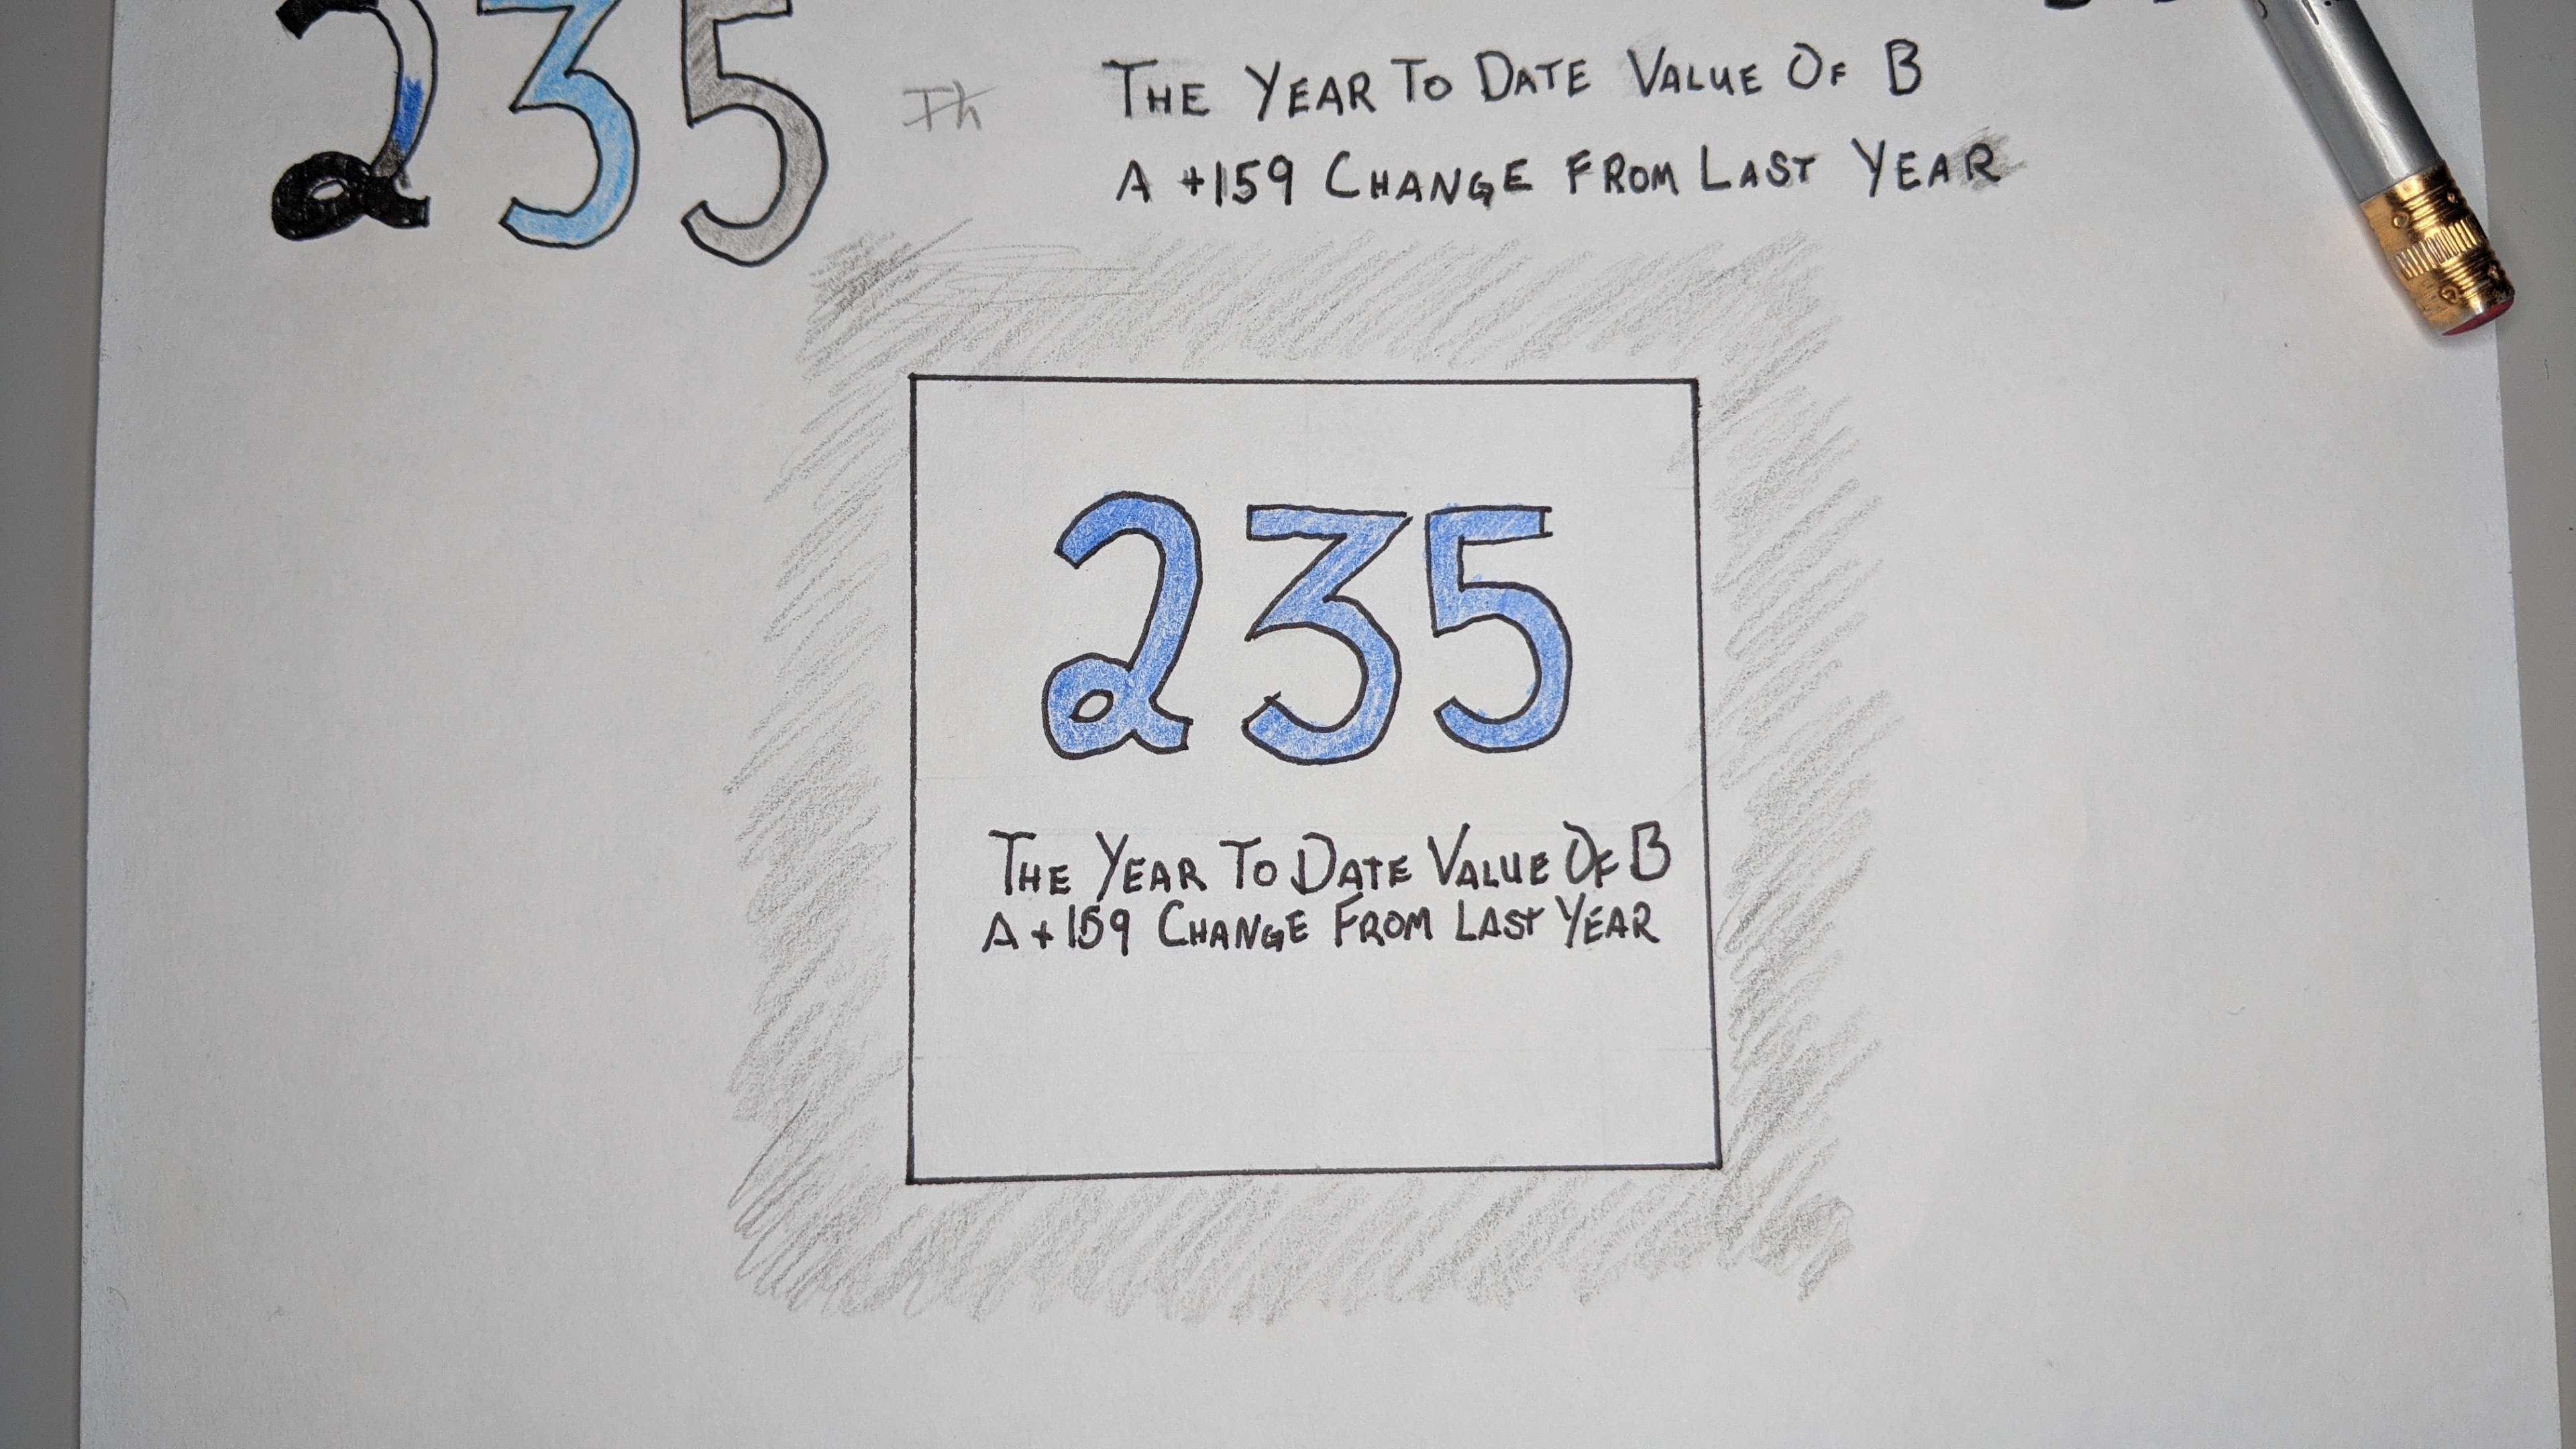 235
Th
THE YEAR TO DATE VALUE OF B
A +159 CHANGE FROM LAST YEAR
235
THE YEAR TO DATE VALUE OF B
A +159 CHANGE FROM LAST YEAR